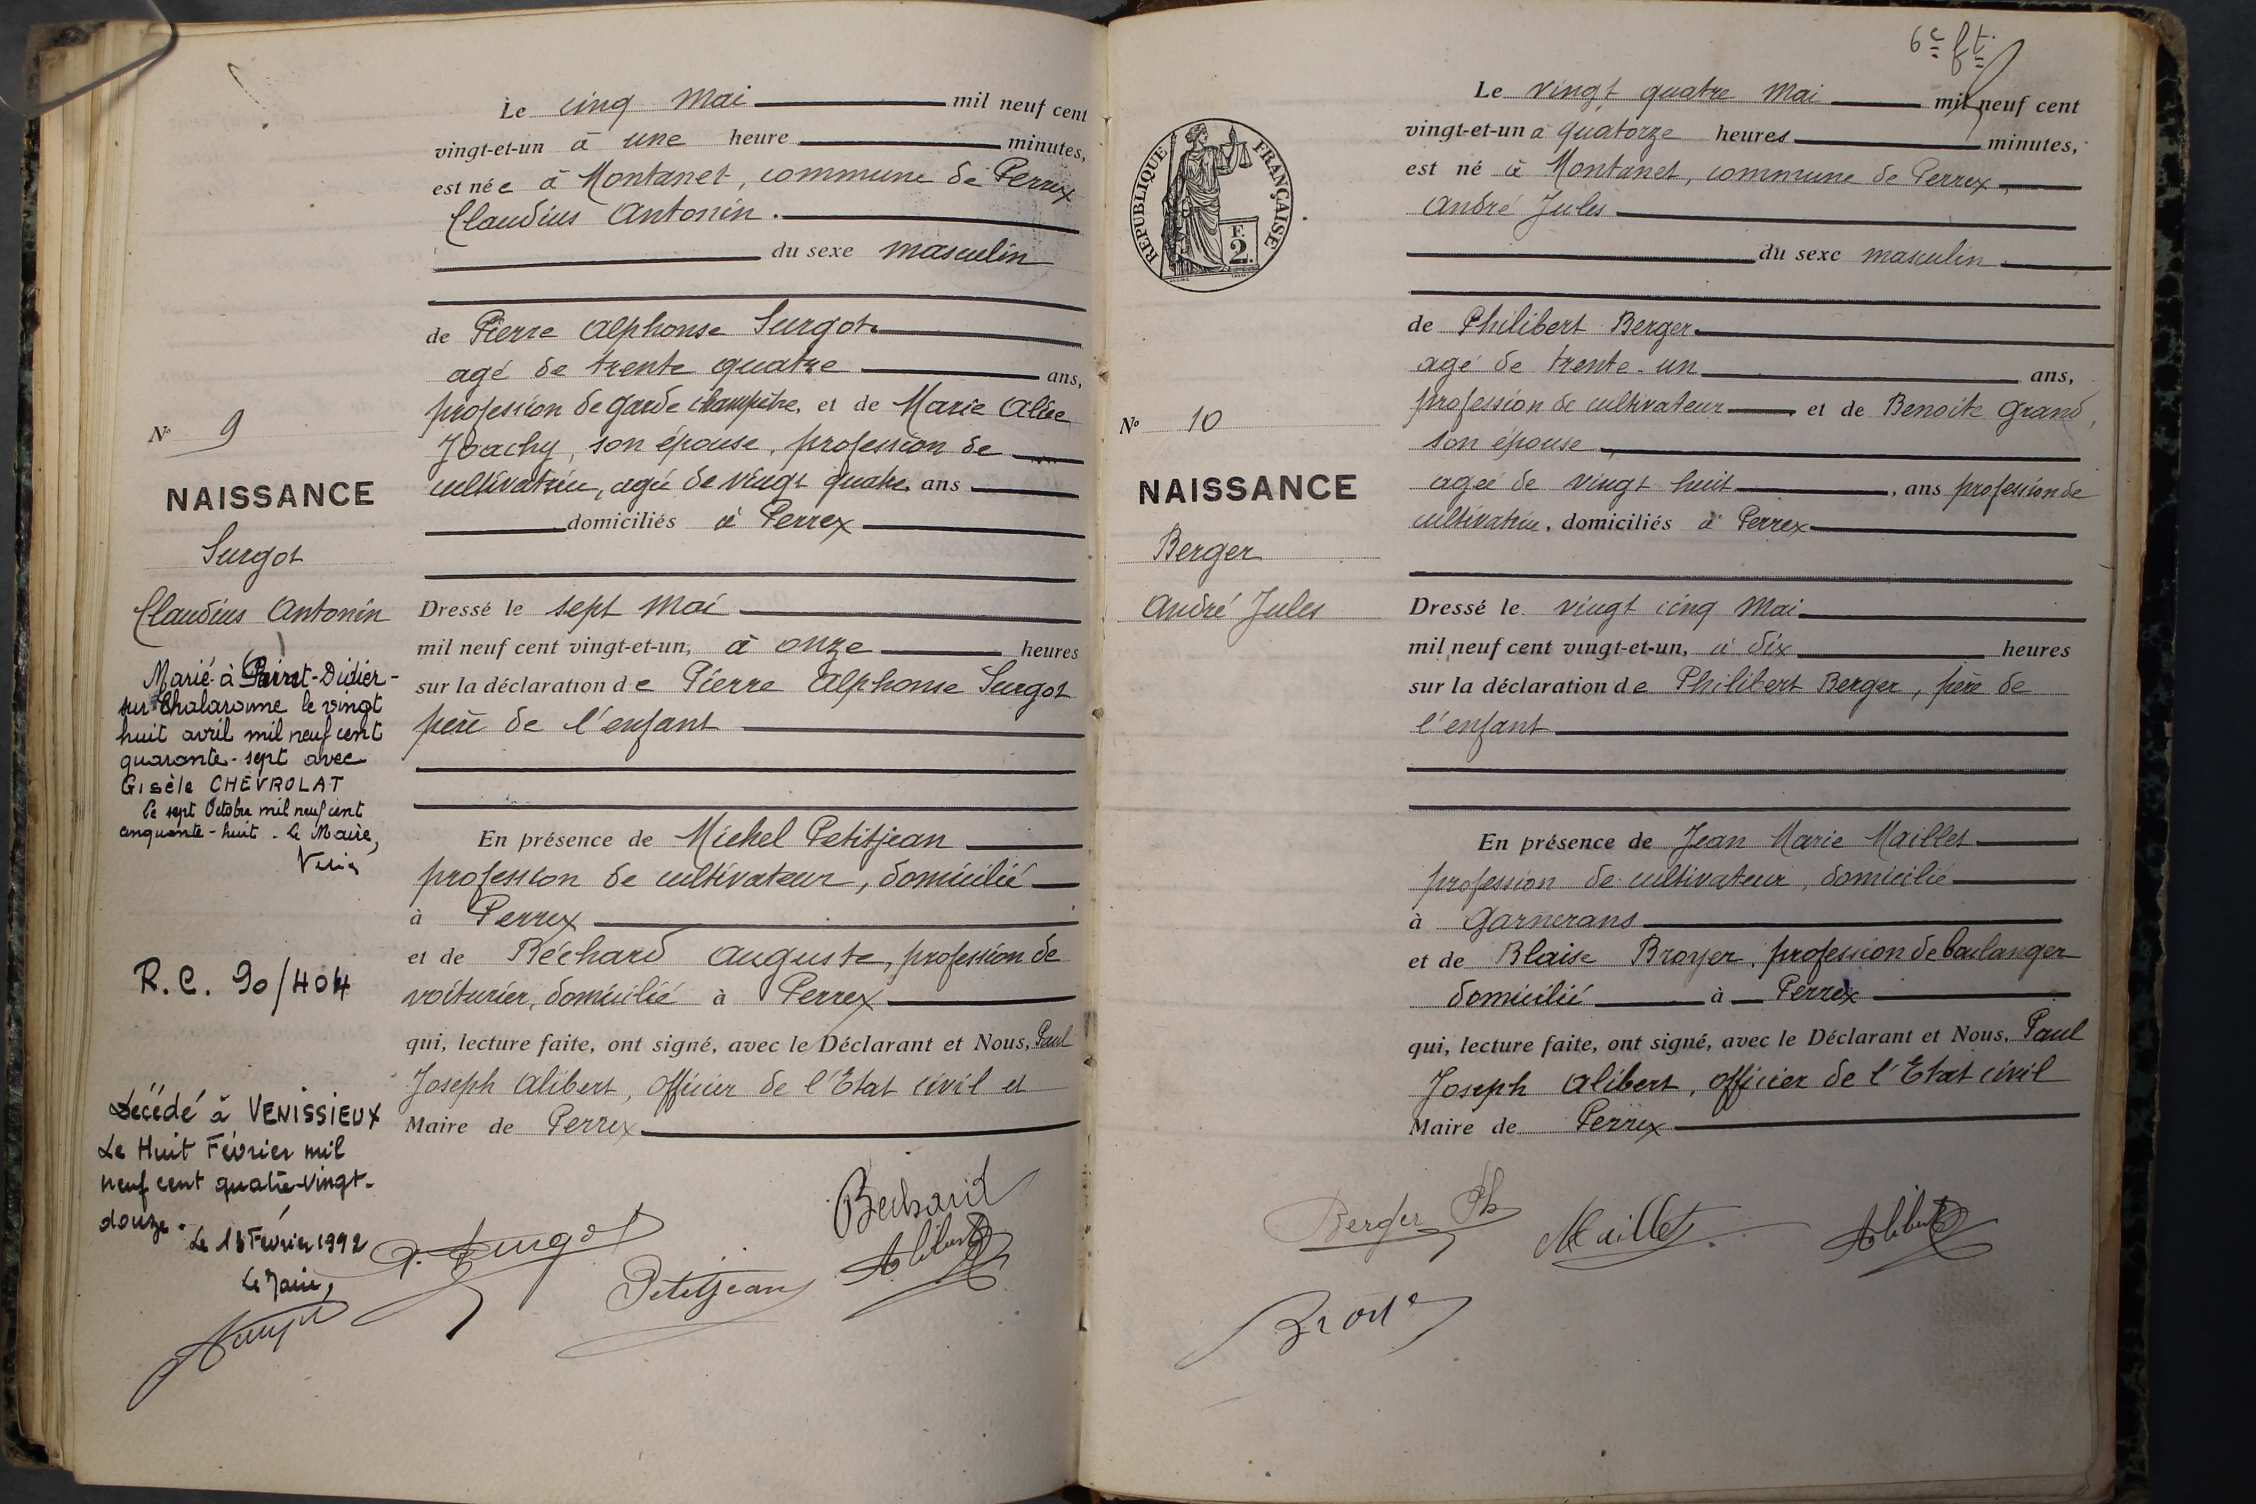 Le cinq Mai mil neuf cent
vingt-et-un à une heure minutes,
est née à Montanet, commune de Perrex
Claudius Antonin.
du sexe masculin
de Pierre Alphonse Surgot
agé de trente quatre ans,
profession de garde champêtre, et de Marie Alice
Joachy, son épouse, profession de
cultivatrice, agée de vingt quatre ans
domiciliés à Perrex
Dressé le sept Mai
mil neuf cent vingt-et-un, à onze heures
sur la déclaration de Pierre Alphonse Surgot
père de l'enfant
En présence de Michel Petitjean
profession de cultivateur, domicilié
à Perrex
et de Béchard Auguste, profession de
voiturier, domicilié à Perrex
qui, lecture faite, ont signé, avec le Déclarant et Nous, Paul
Joseph Alibert, officier de l'Etat civil et
Maire de Perrex
P. Surgot
Petitjean
Bechard
Alibert
No 9
NAISSANCE
Surgot
Claudius Antonin
Marié à Saint-Didier-
sur Chalaronne le vingt
huit avril mil neuf cent
quarante-sept avec
Gisèle CHEVROLAT
Le sept Octobre mil neuf cent
cinquante-huit. Le Maire,
R.C. 90/404
Décédé à VENISSIEUX
Le Huit Février mil
neuf cent quatre-vingt-
douze.
Le 18 Février 1992
Le Maire,
6e ft.
REPUBLIQUE FRANÇAISE
F.
2.
No 10
NAISSANCE
Berger
André Jules
Le vingt quatre Mai mil neuf cent
vingt-et-un à quatorze heures minutes,
est né à Montanet, commune de Perrex,
André Jules
du sexe masculin
de Philibert Berger
agé de trente-un ans,
profession de cultivateur et de Benoite Grand,
son épouse
agée de vingt huit, ans profession de
cultivatrice, domiciliés à Perrex
Dressé le vingt cinq Mai
mil neuf cent vingt-et-un, à dix heures
sur la déclaration de Philibert Berger, père de
l'enfant
En présence de Jean Marie Maillet
profession de cultivateur, domicilié
à Garnerans
et de Blaise Broyer, profession de boulanger
domicilié à Perrex
qui, lecture faite, ont signé, avec le Déclarant et Nous, Paul
Joseph Alibert, officier de l'Etat civil
Maire de Perrex
Berger Ph
Maillet
Alibert